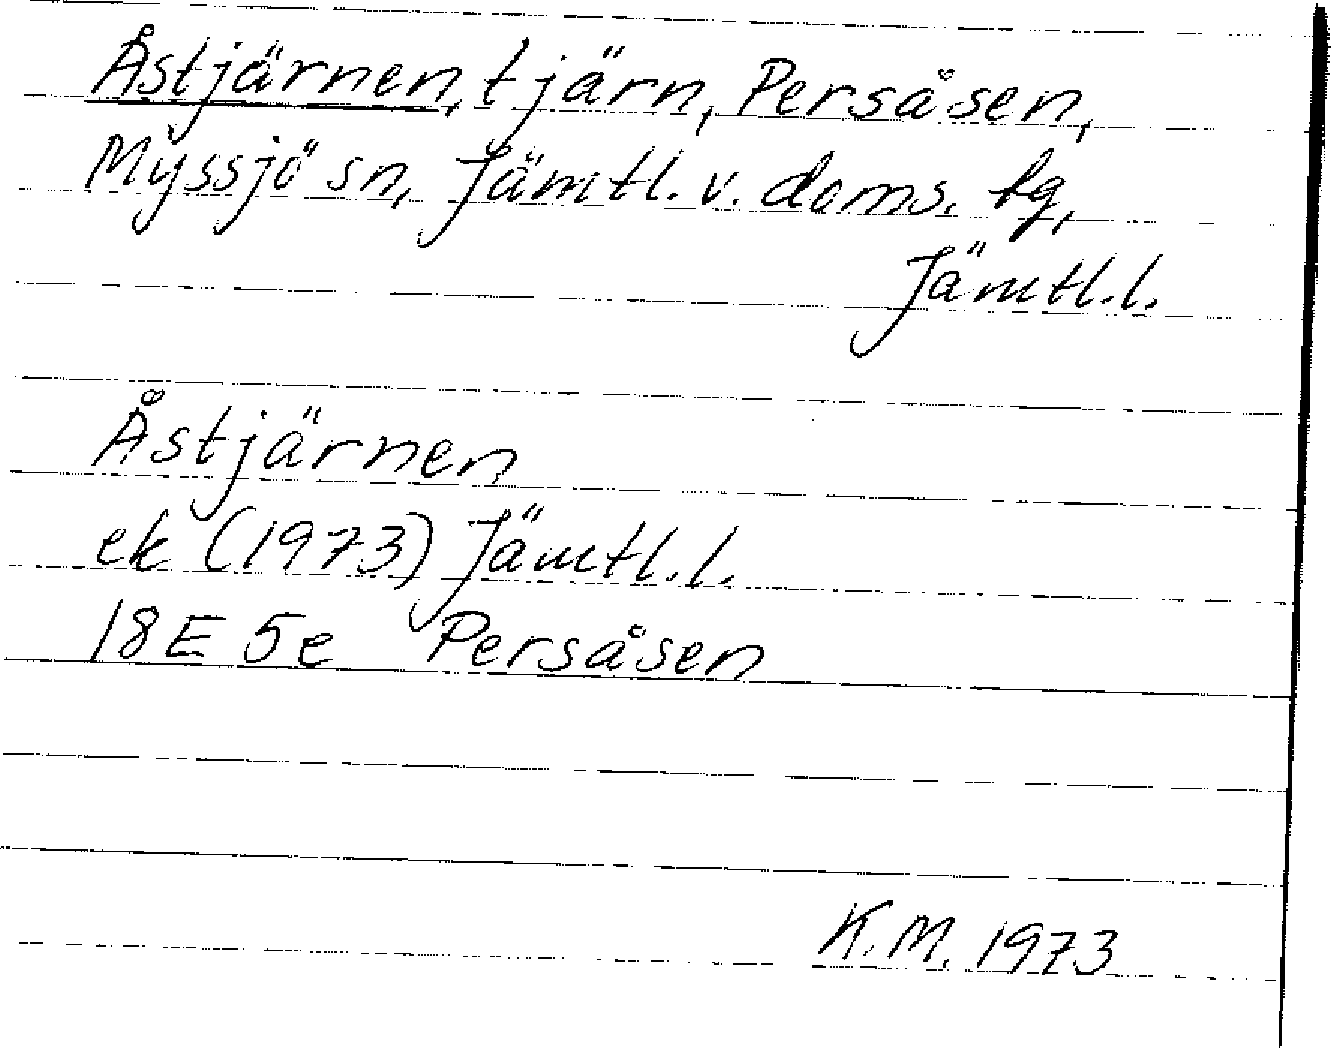 Åstjärnen, tjärn, Persåsen,
Myssjö sn, Jämtl. v. doms. tg,
Jämtl.l.
Åstjärnen
ek (1973) Jämtl.l.
18E 5e Persåsen
K.M. 1973